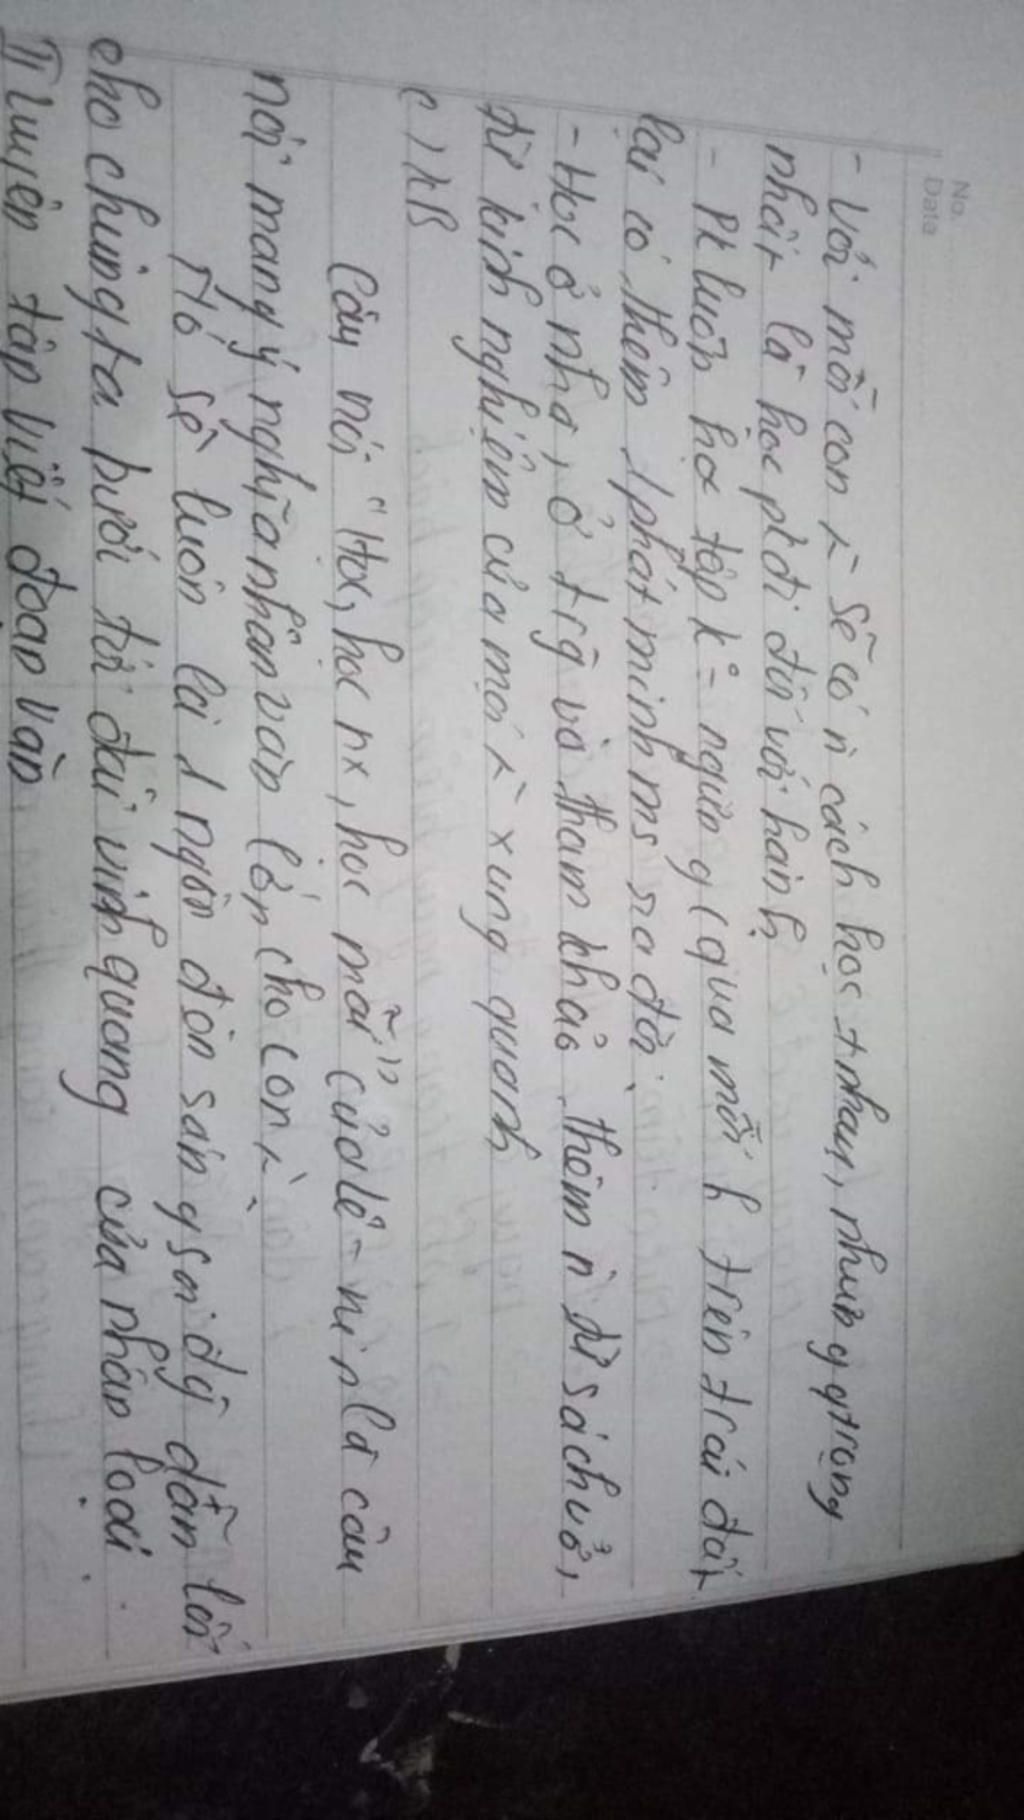 No.
Date
- Với mỗi con ng̀ sẽ có n̄ cách học # nhau, nhưng qtrọng
nhất là học phải đi đối với hành
- Pk luôn học tập k° = ngừng (qua mỗi h trên trái đất
lại có thêm 1 phát minh ms ra đời
- Học ở nhà, ở trg và tham khảo thêm n̄ từ sách vở,
từ kinh nghiệm của mọi ng̀ xung quanh
c) KB
Câu nói "Học, học nx, học mãi" của Lê - nin là câu
nói mang ý nghĩa nhân văn lớn cho con ng̀.
Nó sẽ luôn là 1 ngọn đèn sáng soi dẫn lối
cho chúng ta bước tới đài vinh quang của nhân loại.
II Luyện tập viết đoạn văn